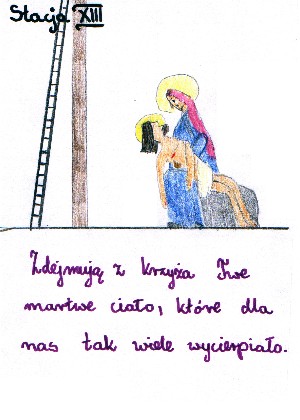 Stacja XIII
Zdejmują z krzyża Twe
martwe ciało, które dla
nas tak wiele wycierpiało.